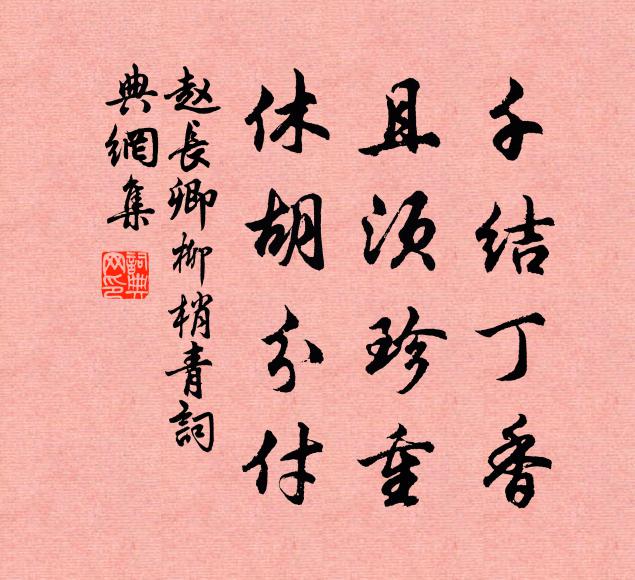 千结丁香
且须珍重
休胡分付
赵長卿柳梢青詞
典網集
詞典网印